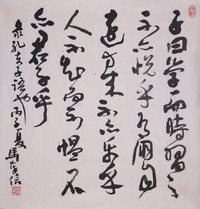 子曰學而時習之
不亦悅乎有朋自
遠方來不亦樂乎
人不知而不慍不
亦君子乎
孔夫子語也丙子夏馬